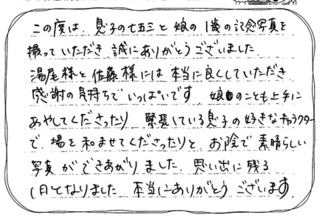 この度は、息子の七五三と娘の1歳の記念写真を
撮っていただき誠にありがとうございました。
湯尾様と佐藤様には本当に良くしていただき
感謝の気持ちでいっぱいです 娘のことも上手に
あやしてくださったり 緊張している息子の好きなキャラクター
で、場を和ませてくださったりと お陰で素晴らしい
写真ができあがりました。思い出に残る
1日となりました 本当にありがとうございます